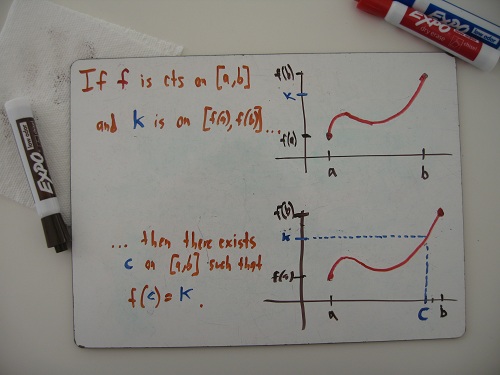 If f is cts on [a,b]
and k is on [f(a), f(b)]...
f(b)
k
f(a)
a
b
... then there exists
c on [a,b] such that
f(c) = k.
f(b)
k
f(a)
a
c
b
EXPO
EXPO
EXPO